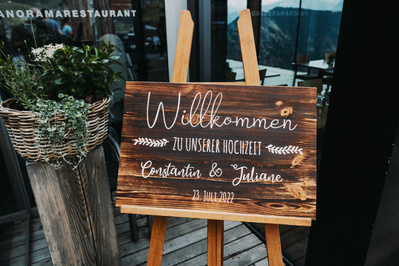 ANORAMARESTAURANT
Willkommen
ZU UNSERER HOCHZEIT
Constantin & Juliane
23. JULI 2022